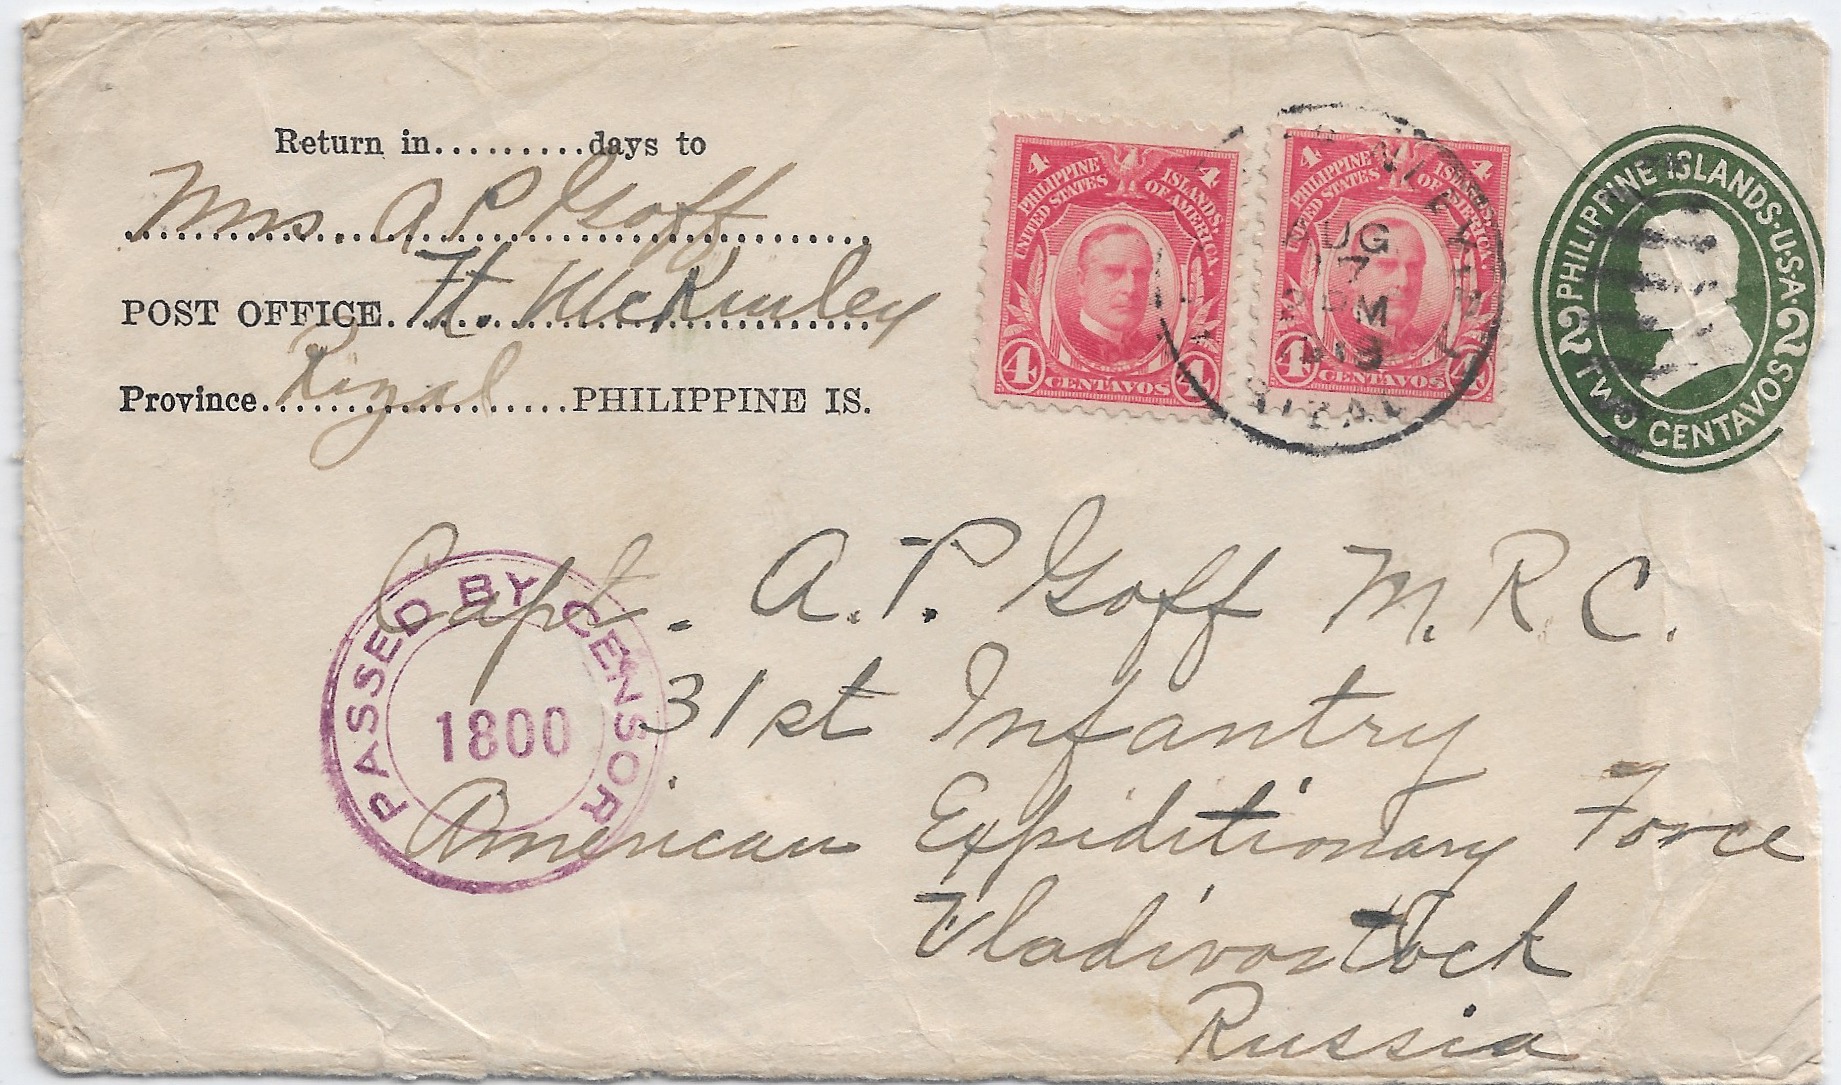 Return in.........days to
Mrs. A P Goff
POST OFFICE. Ft. McKinley
Province. Rizal PHILIPPINE IS.
4 4
PHILIPPINE ISLANDS
UNITED STATES OF AMERICA
4 CENTAVOS 4
4 4
PHILIPPINE ISLANDS
UNITED STATES OF AMERICA
4 CENTAVOS 4
AUG
7
PM
RIZAL
PHILIPPINE ISLANDS·U·S·A·
2 2
TWO CENTAVOS
Capt. A. P. Goff M. R. C.
31st Infantry
American Expiditionary Force
Vladivostock
Russia
PASSED BY CENSOR
1800